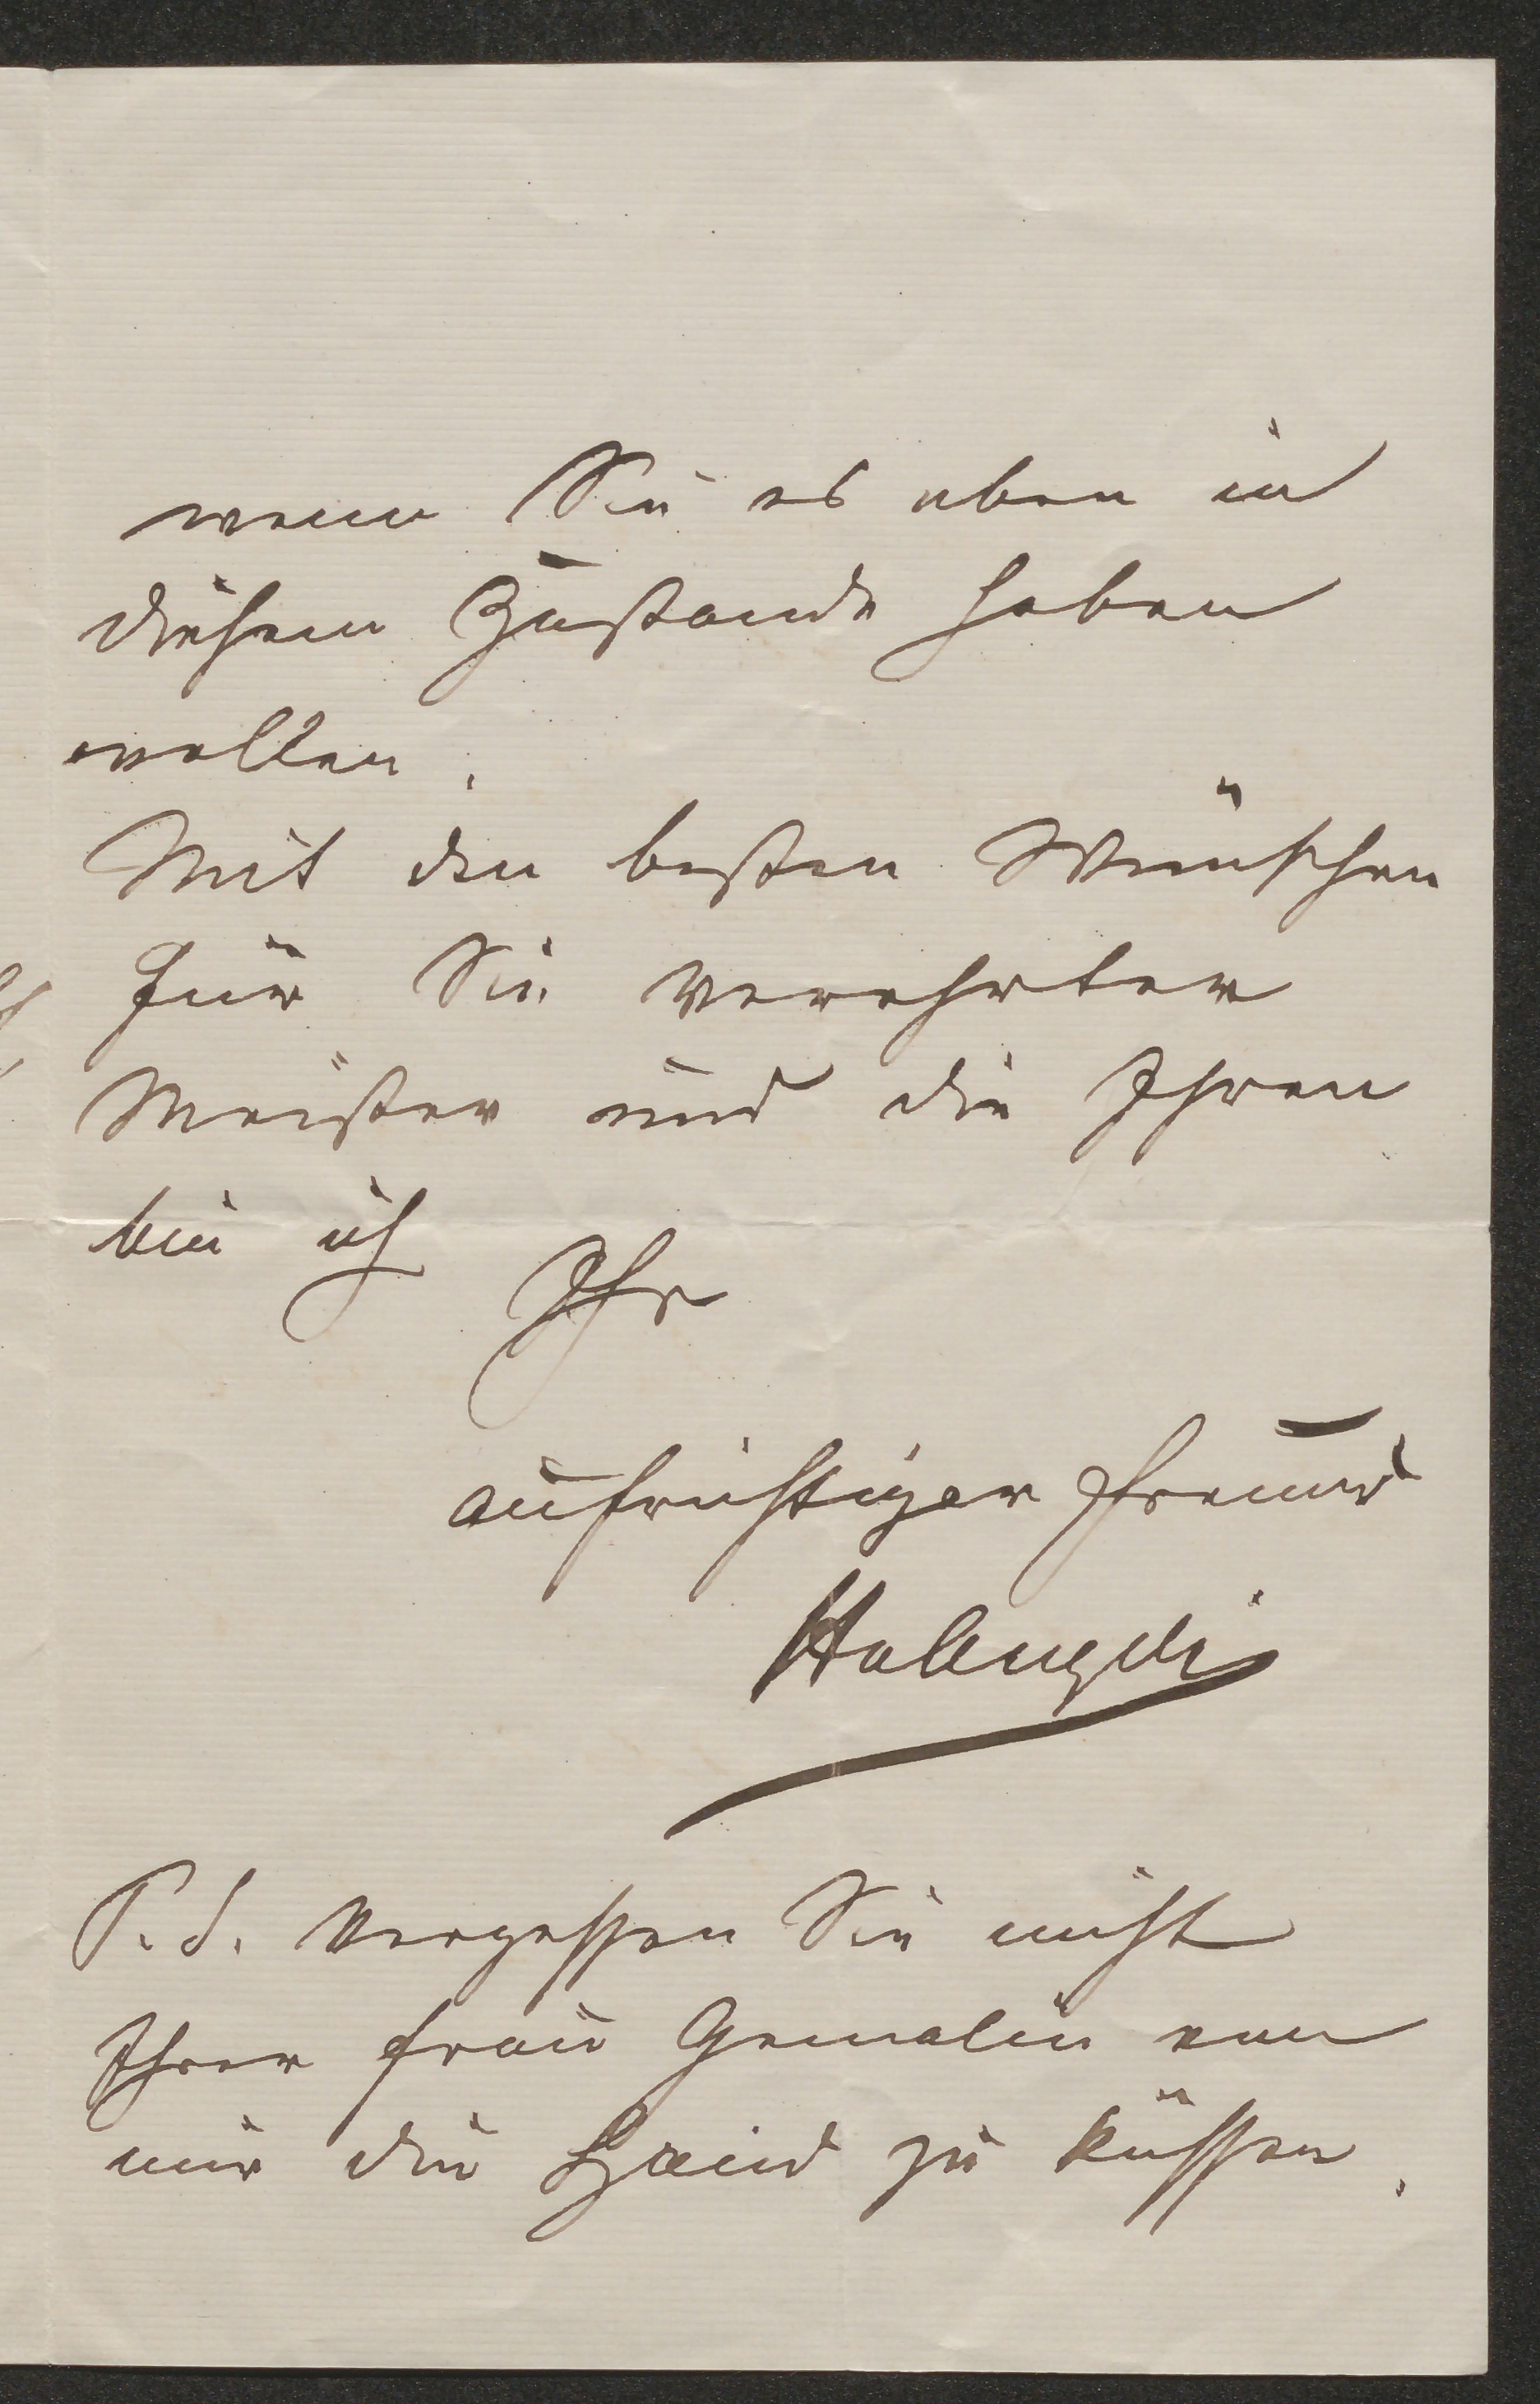 wenn Sie es eben in
diesem Zustande haben
wollen.
Mit den besten Wünschen
für Sie verehrter
Meister und die Ihren
bin ich
Ihr
aufrichtiger Freund
P. S. Vergessen Sie nicht
Ihrer Frau Gemalin von
mir die Hand zu küssen.